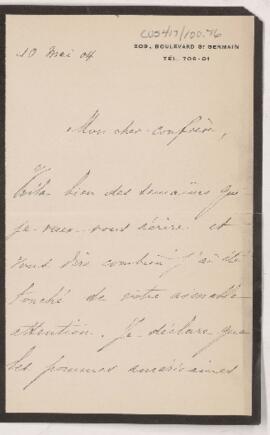 COS417/100.76
209, BOULEVARD ST GERMAIN
TÉL. 706-01
10 Mai 04
Mon cher confrère,
Voilà bien des semaines que
je veux vous écrire et
vous dire combien j'ai été
touché de votre aimable
attention. Je déclare que
les pommes américaines